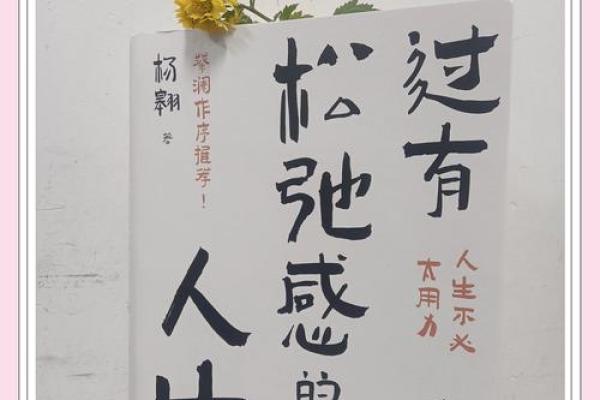 过有
人生不必
太用力
松弛感的
人生
蔡澜作序推荐！
杨翱 著